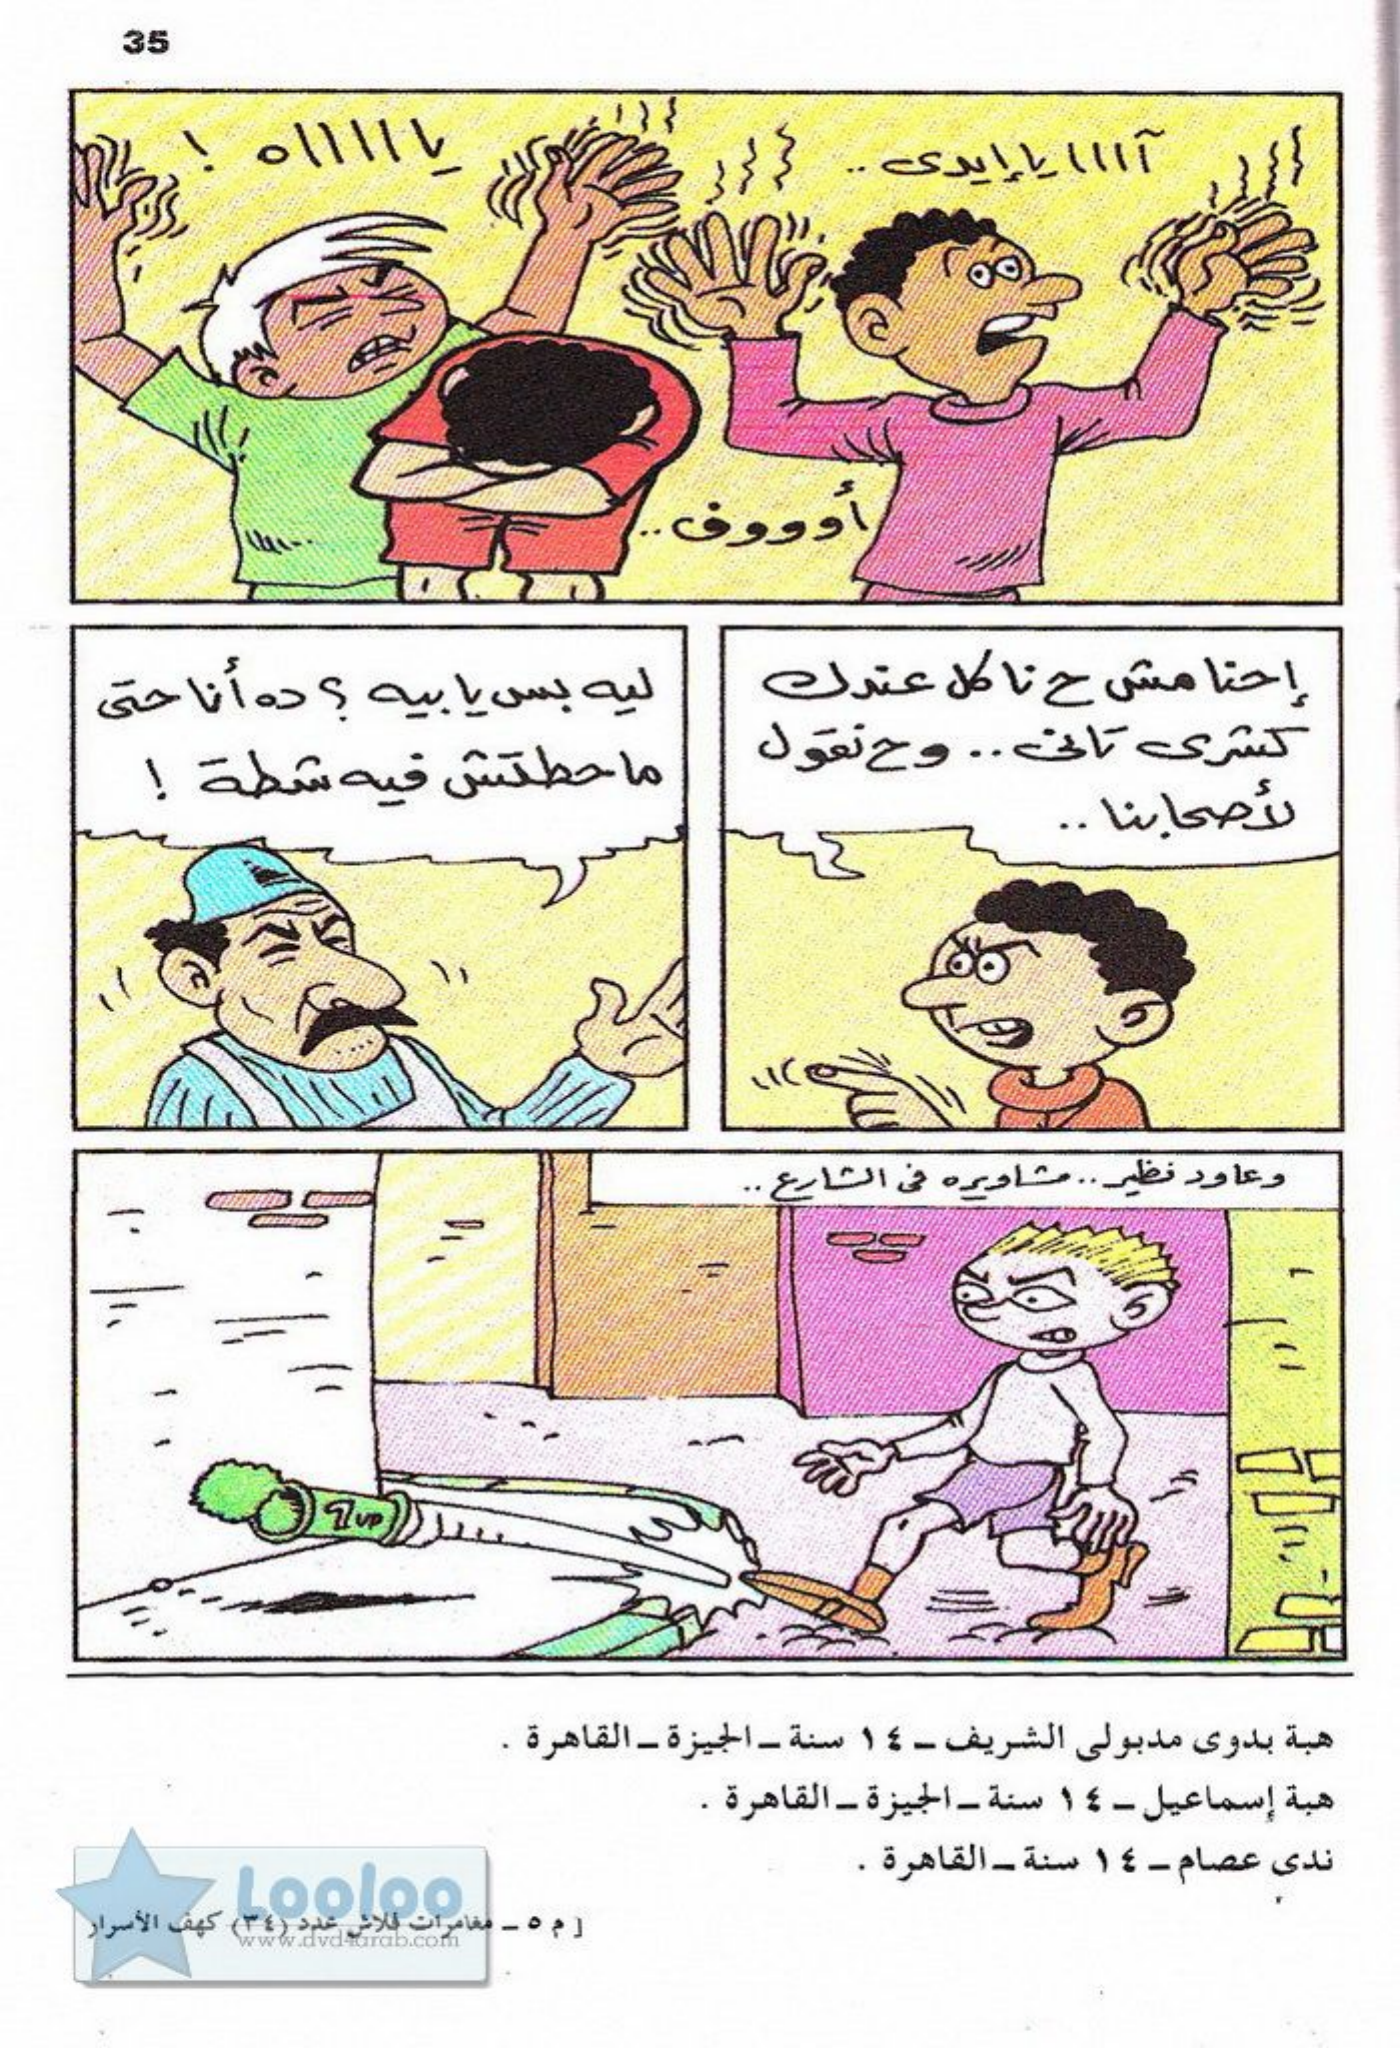 35
آاااا يا إيدى ..
يااااااه !
أوووف ..
إحنا مش ح ناكل عندك
كشرى تانى .. وح نقول
لأصحابنا ..
ليه بس يا بيه ؟ ده أنا حتى
ما حطتش فيه شطة !
وعاود نظير .. مشاويره فى الشارع ..
7up
هبة بدوى مدبولى الشريف – ١٤ سنة – الجيزة – القاهرة .
هبة إسماعيل – ١٤ سنة – الجيزة – القاهرة .
ندى عصام – ١٤ سنة – القاهرة .
Looloo
[ م ٥ – مغامرات فلاش عدد (٣٤) كهف الأسرار
www.dvd4arab.com